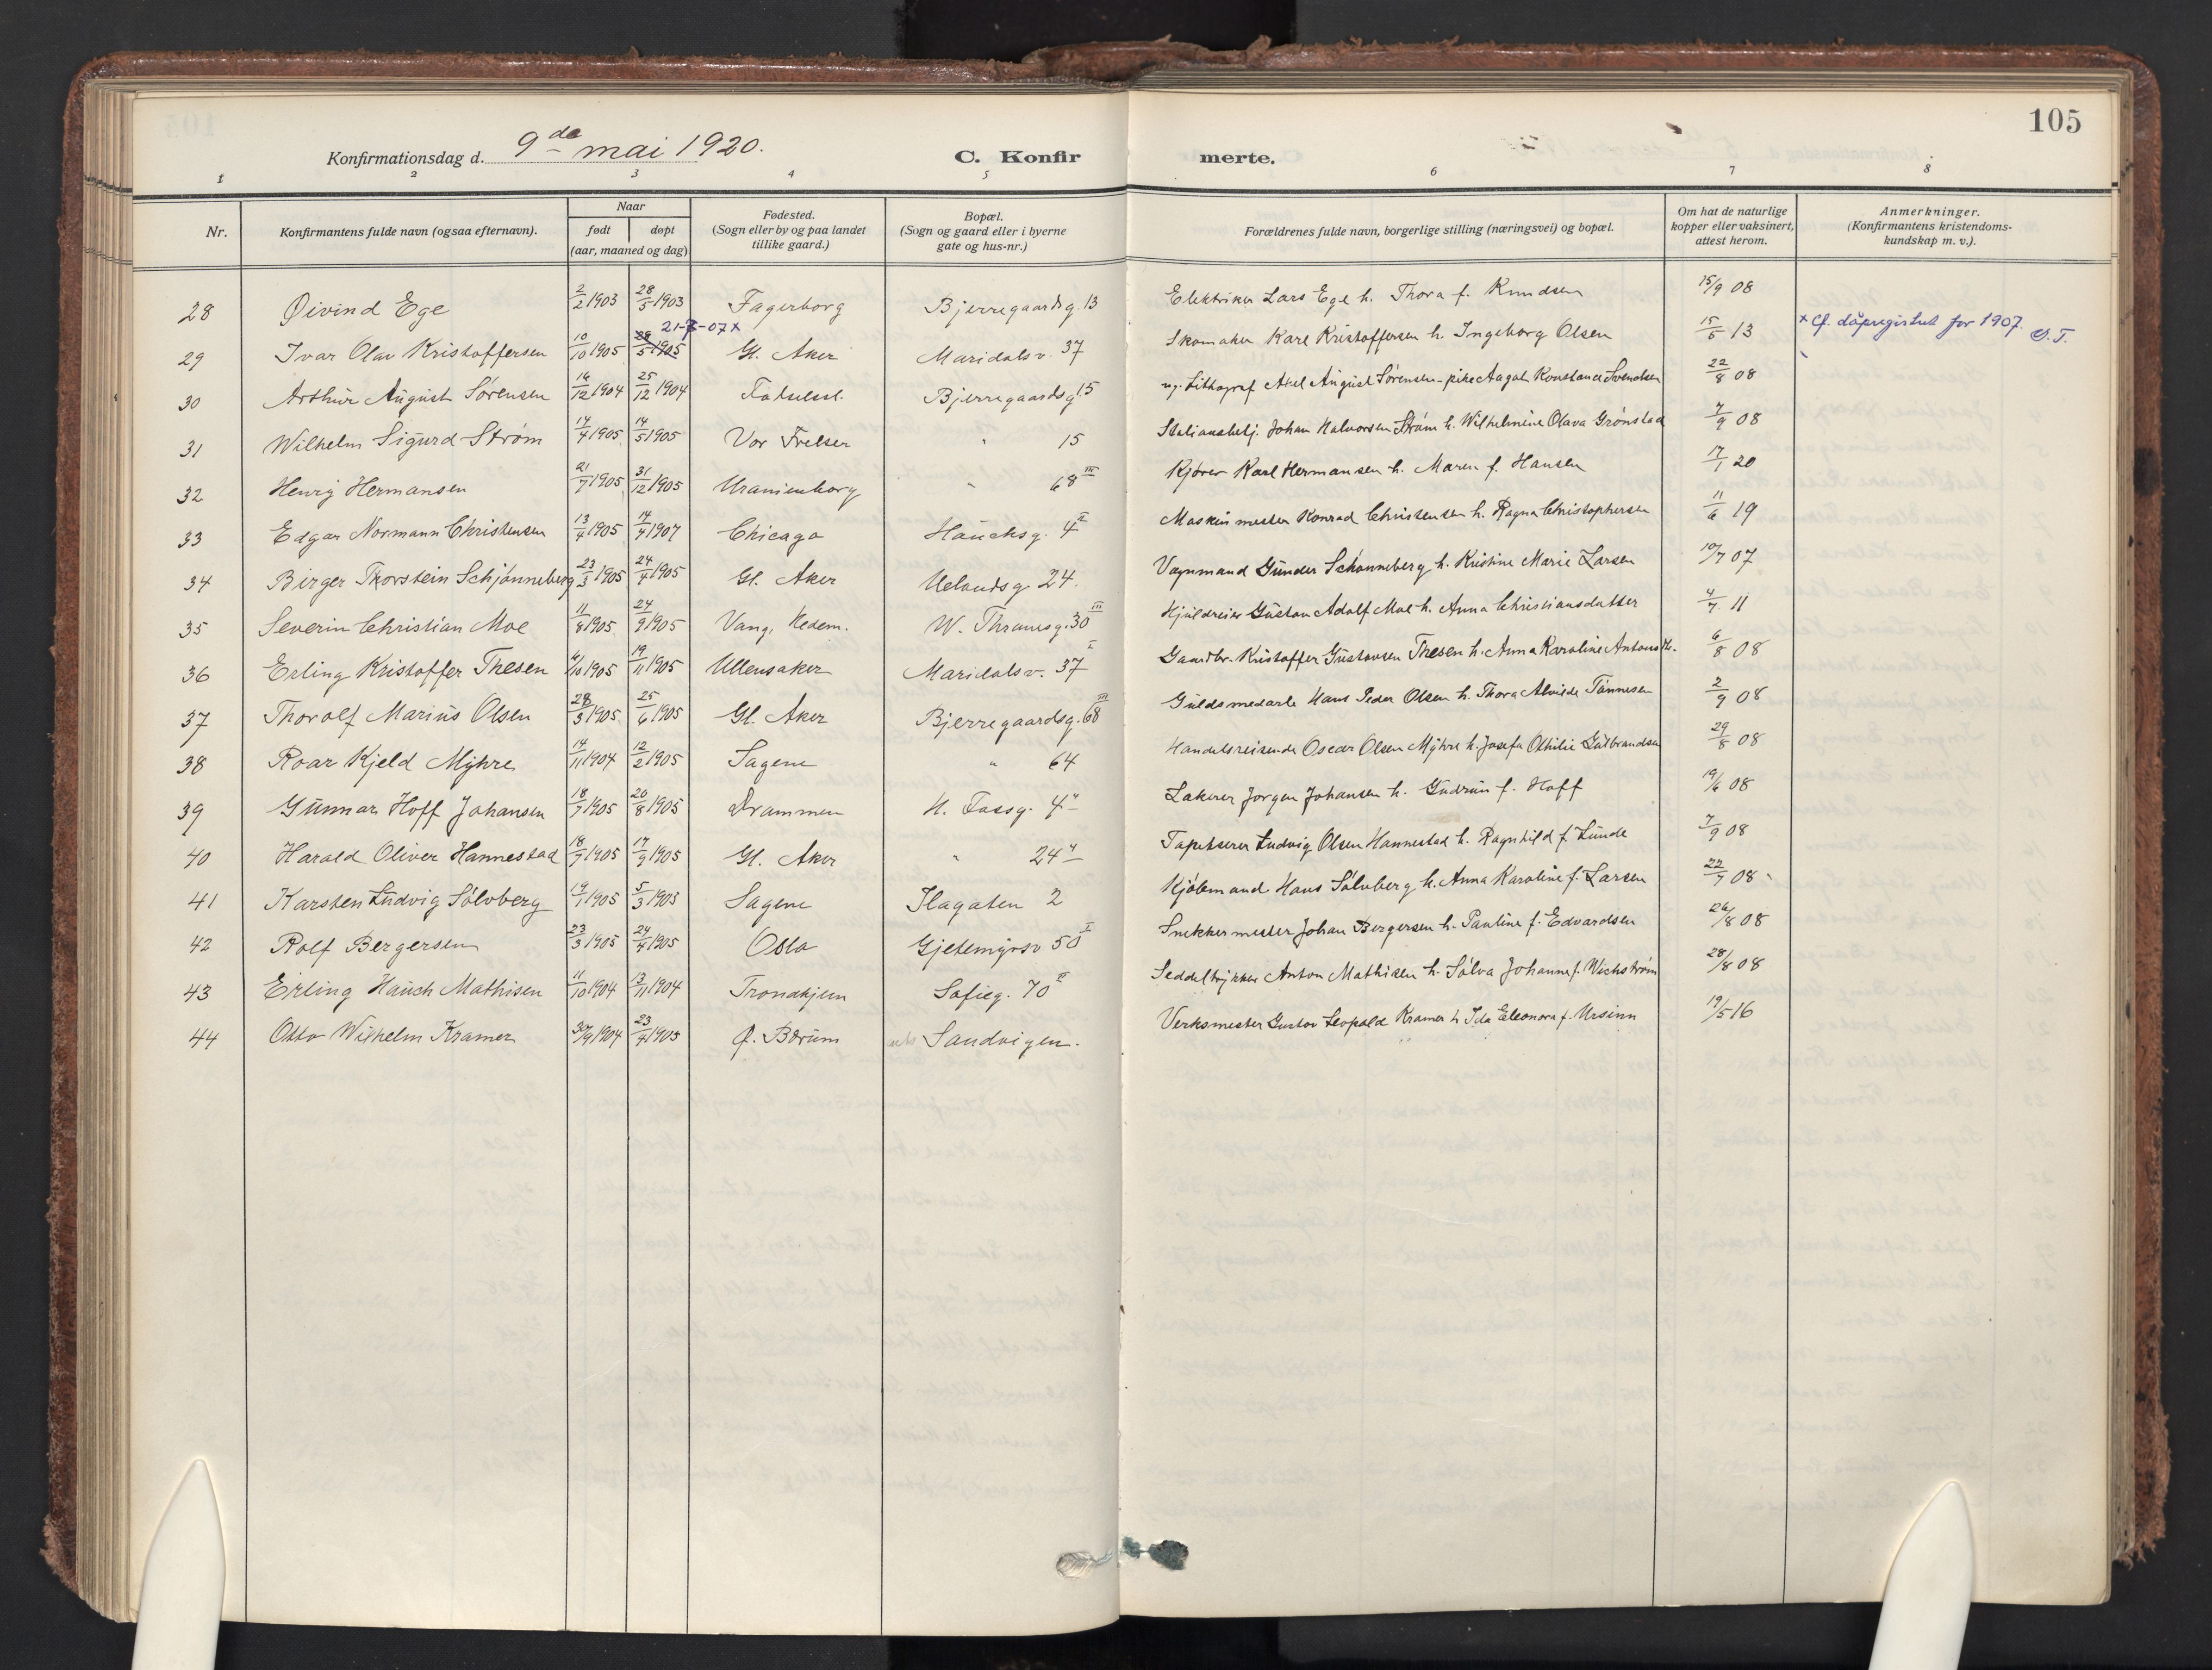 105
Konfirmationsdag d. 9de mai 1920. C. Konfirmerte.
1 2 3 4 5 6 7 8
Nr. Konfirmantens fulde navn (ogsaa efternavn). Naar født døpt (aar, maaned og dag) Fødested. (Sogn eller by og paa landet tillike gaard.) Bopæl. (Sogn og gaard eller i byerne gate og hus-nr.) Forældrenes fulde navn, borgerlige stilling (næringsvei) og bopæl. Om hat de naturlige kopper eller vaksinert, attest herom. Anmerkninger. (Konfirmantens kristendoms-kundskap m. v.).
28 Øivind Ege 2/2 1903 28/5 1903 Fagerborg Bjerregaardsg. 13 Elektriker Lars Ege h. Thora f. Knudsen 15/9 08
21-7-07 x
29 Ivar Olav Kristoffersen 10/10 1905 28/5 1905 Gl. Aker Maridalsv. 37 Skomaker Karl Kristoffersen h. Ingeborg Olsen 15/5 13 x Cf. dåpregistret for 1907. S.T.
30 Arthur August Sørensen 16/12 1904 25/12 1904 Bjerregaardsg 15 ug. Lithograf Axel August Sørensen - pike Aagot Konstance Svendsen 22/8 08
31 Wilhelm Sigurd Strøm 17/4 1905 14/5 1905 Vor Frelser " 15 Stationsbetj. Johan Halvorsen Strøm h. Wilhelmine Olava Grønstad 7/9 08
32 Henry Hermansen 21/7 1905 31/12 1905 Uranienborg " 68 III Kjører Karl Hermansen h. Maren f. Hansen 17/1 20
33 Edgar Normann Christensen 13/4 1905 14/4 1907 Chicago Hauchsg. 4 II Maskinmester Konrad Christensen h. Ragna Christophersen 11/6 19
34 Birger Thorstein Schjønneberg 23/3 1905 24/4 1905 Gl. Aker Uelandsg 24. Vognmand Gunder Schønneberg h. Kristine Marie Larsen 10/7 07
35 Severin Christian Moe 11/8 1905 24/9 1905 Vang, Hedem. W. Thranesg. 30 III Hjuldreier Gustav Adolf Moe h. Anna Christiansdatter 4/7 11
36 Erling Kristoffer Thesen 6/10 1905 19/11 1905 Ullensaker Maridalsv. 37 I Gaardbr. Kristoffer Gustavsen Thesen h. Anna Karoline Antonsdtr. 6/8 08
37 Thorolf Marius Olsen 28/3 1905 25/6 1905 Gl. Aker Bjerregaardsg. 68 III Guldsmedarb Hans Peder Olsen h. Thora Alvilde Tønnesen 2/9 08
38 Roar Kjeld Myhre 14/11 1904 12/2 1905 Sagene " 64 Handelsreisende Oscar Olsen Myhre h. Josefa Othilie Gulbrandsen 29/8 08
39 Gunnar Hoff Johansen 18/7 1905 20/8 1905 Drammen H. Fossg. 4 Lakerer Jørgen Johansen h. Gudrun f. Hoff 19/6 08
40 Harald Oliver Hannestad 18/7 1905 17/9 1905 Gl. Aker " 24 Tapetserer Ludvig Olsen Hannestad h. Ragnhild f. Lunde 7/9 08
41 Karsten Ludvig Sølvberg 19/1 1905 5/3 1905 Sagene Ilagaten 2 Kjøbmand Hans Sølvberg h. Anna Karoline f. Larsen 22/7 08
42 Rolf Bergersen 23/3 1905 24/4 1905 Oslo Gjetemyrsv 50 I Snekkermester Johan Bergersen h. Pauline f. Edvardsen 26/8 08
43 Erling Hauch Mathisen 11/10 1904 13/11 1904 Trondhjem Sofieg. 70 II Seddeltrykker Anton Mathisen h. Sølva Johanne f. Wichstrøm 28/8 08
44 Otto Wilhelm Kramer 30/9 1904 23/4 1905 Ø. Bærum Sandvigen. Verksmester Gustav Leopold Kramer h Ida Eleonora f. Ursinn 19/5 16